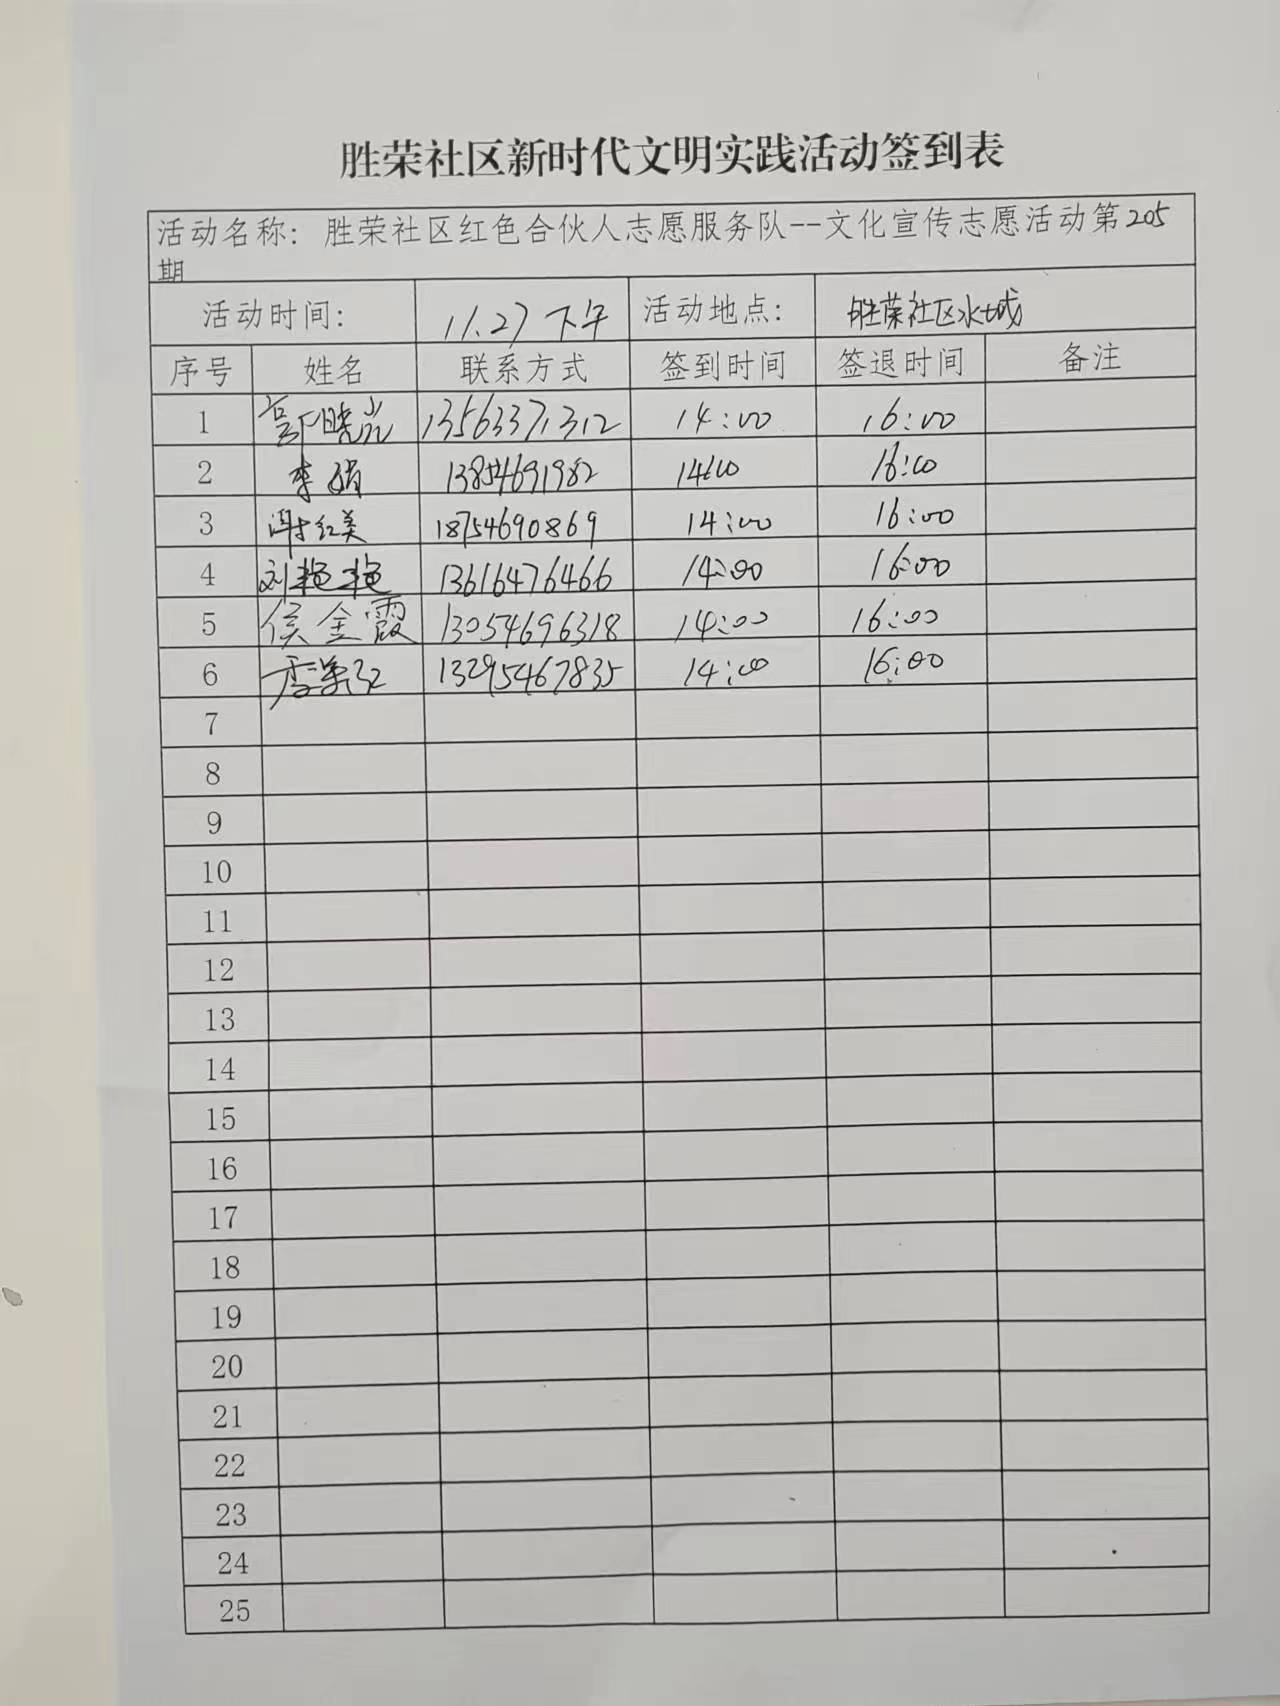 胜荣社区新时代文明实践活动签到表
活动名称：胜荣社区红色合伙人志愿服务队--文化宣传志愿活动第205
期
活动时间： 11.27下午 活动地点： 胜荣社区水城
序号 姓名 联系方式 签到时间 签退时间 备注
1 13563371312 14:00 16:00
2 李娟 13854691982 14:00 16:00
3 谢红美 18754690869 14:00 16:00
4 刘艳艳 13616476466 14:00 16:00
5 侯金霞 13054696318 14:00 16:00
6 13295467835 14:00 16:00
7
8
9
10
11
12
13
14
15
16
17
18
19
20
21
22
23
24
25